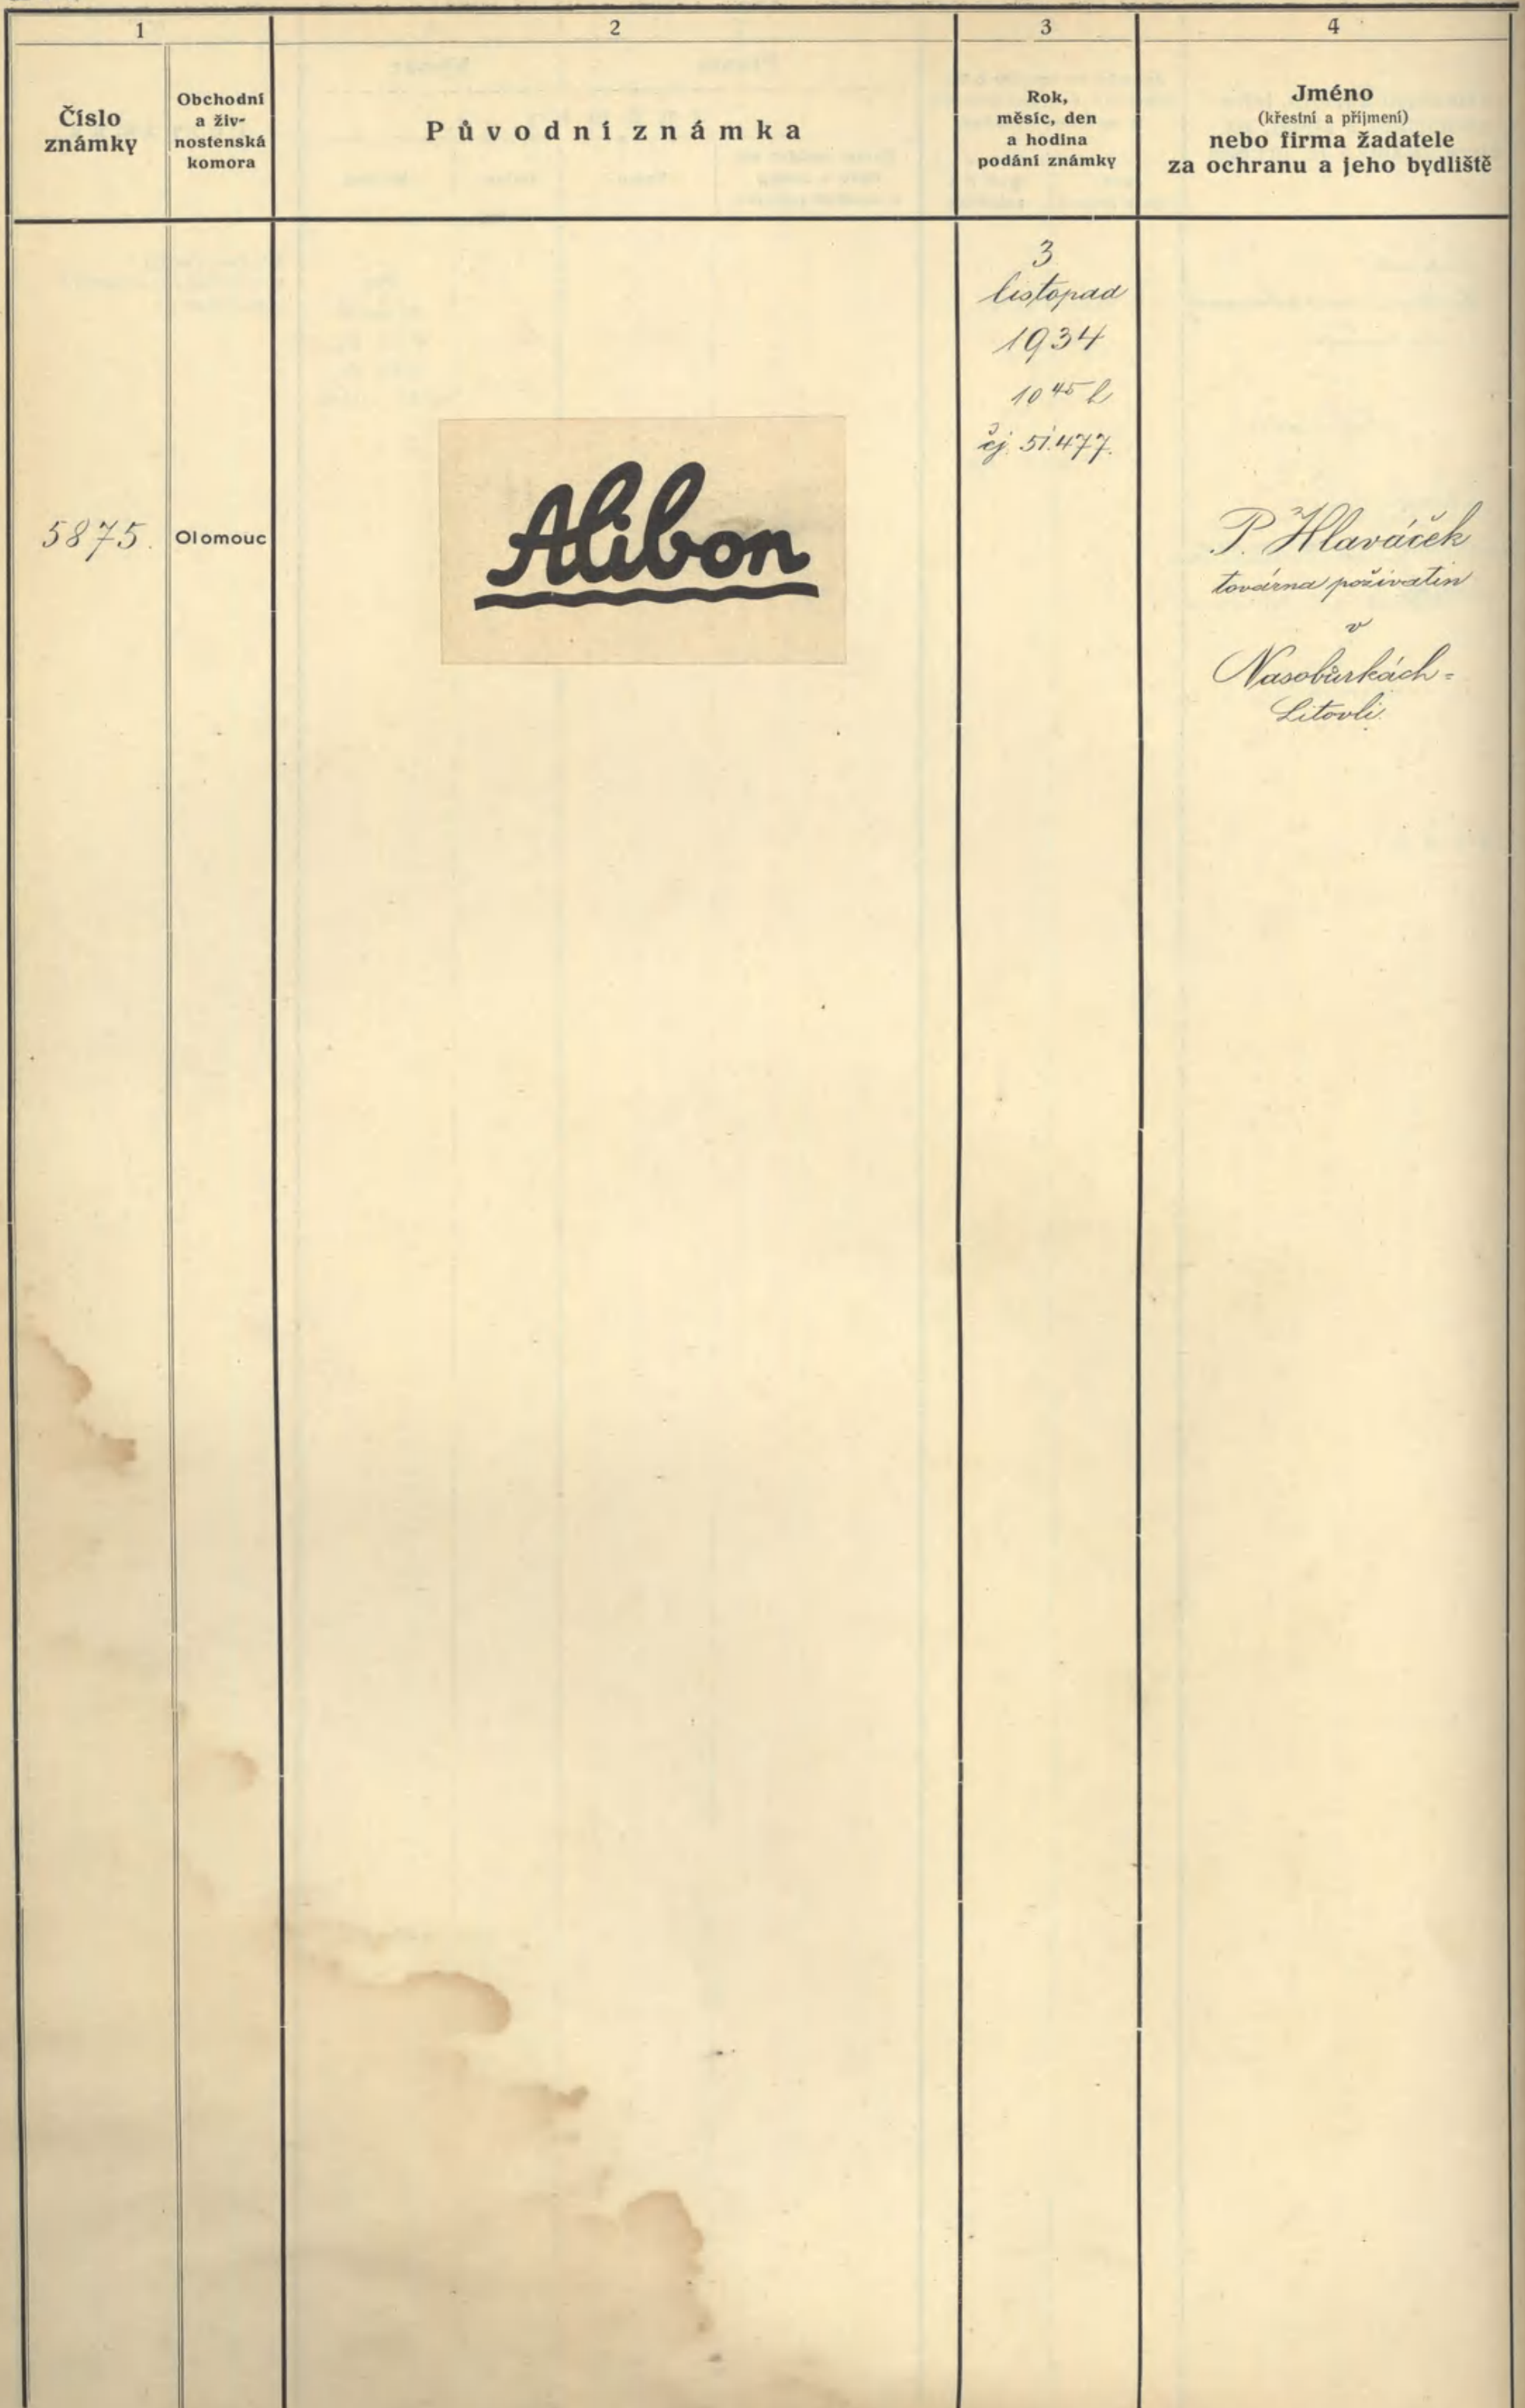 1
2
3
4
Číslo
známky
Obchodní
a živ-
nostenská
komora
Původní známka
Rok,
měsíc, den
a hodina
podání známky
Jméno
(křestní a příjmení)
nebo firma žadatele
za ochranu a jeho bydliště
5875.
Olomouc
Alibon
3
listopad
1934
10 45 h
čj. 51.477.
P. Hlaváček
továrna poživatin
v
Nasobůrkách=
Litovli.